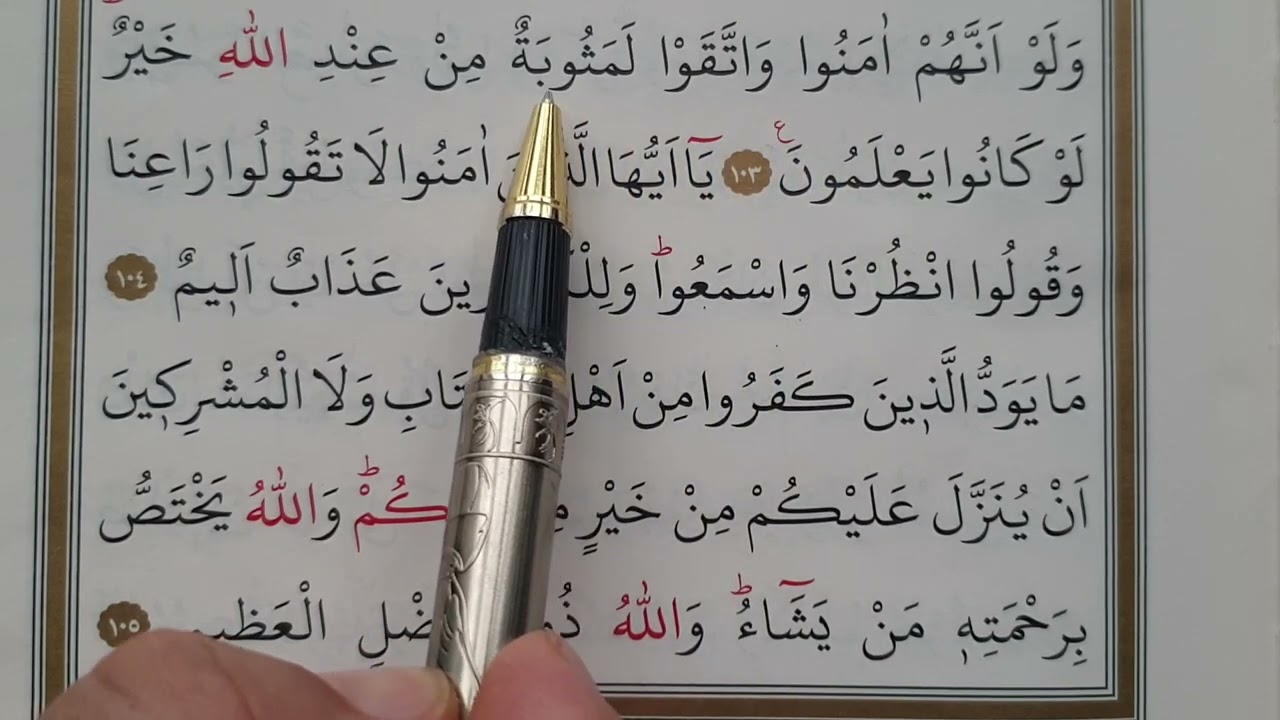 وَلَوْ اَنَّهُمْ اٰمَنُوا وَاتَّقَوْا لَمَثُوبَةٌ مِنْ عِنْدِ اللّٰهِ خَيْرٌ
لَوْ كَانُوا يَعْلَمُونَ ۧ ١٠٣ يَٓا اَيُّهَا اٰمَنُوا لَا تَقُولُوا رَاعِنَا
وَقُولُوا انْظُرْنَا وَاسْمَعُواۜ عَذَابٌ اَل۪يمٌ ١٠٤
مَا يَوَدُّ الَّذ۪ينَ كَفَرُوا مِنْ اَهْلِ وَلَا الْمُشْرِك۪ينَ
اَنْ يُنَزَّلَ عَلَيْكُمْ مِنْ خَيْرٍ وَاللّٰهُ يَخْتَصُّ
بِرَحْمَتِه۪ مَنْ يَشَٓاءُۜ وَاللّٰهُ ١٠٥